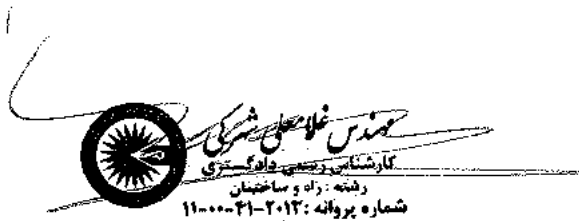 مهندس غلامعلی شهرکی
کارشناس رسمی دادگستری
رشته : راه و ساختمان
شماره پروانه : ۲۰۱۲-۴۱-۰۰-۱۱